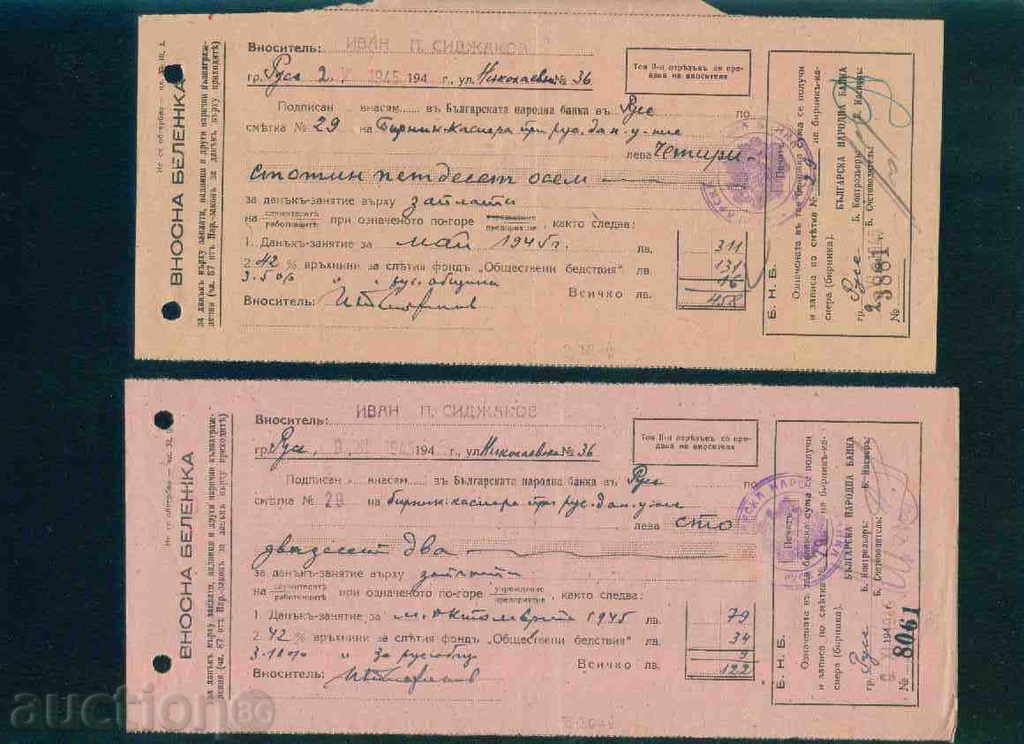 ВНОСНА БЕЛЕЖКА
за данъкъ върху заплати, надници и други парични възнаграж-
дения (чл. 87 отъ Нар.-закон за данъкъ върху приходитѣ)
Вноситель: ИВАН П. СИДЖАКОВ
гр. Русе 2 1945 194 г., ул. Николаевска № 36
Тоя II-и отрѣзъкъ се пре-
дава на вносителя
Подписан внасям въ Българската народна банка въ Русе по
смѣтка № 29 на Бирник-касиера при рус. дан. у-ние
лева четири-
стотин петдесет осем
за данъкъ-занятие върху заплати
на служителитѣ работницитѣ при означеното по-горе учреждение предприятие, както следва:
1. Данъкъ-занятие за май 1945 г. лв. 311
2. 42 % връхнини за слѣтия фондъ „Обществени бедствия" лв. 131
3. 5% " рус. община 16
Всичко лв. 458
Вноситель:
Б. Н. Б.
Означената въ тая бележка сума се получи
и записа по смѣтка № 29 на бирник-ка-
сиера (бирника).
Печатъ
гр. Русе
№ 3881
БЪЛГАРСКА НАРОДНА БАНКА
Б. Контрольоръ: Б. Касиеръ:
Б. Счетоводитель:
ВНОСНА БЕЛЕЖКА
за данъкъ върху заплати, надници и други парични възнаграж-
дения (чл. 87 отъ Нар.-закон за данъкъ върху приходитѣ)
Вноситель: ИВАН П. СИДЖАКОВ
гр. Русе, 1945 194 г., ул. Николаевска № 36
Тоя II-и отрѣзъкъ се пре-
дава на вносителя
Подписан внасям въ Българската народна банка въ Русе по
смѣтка № 29 на бирник-касиера при рус. дан. у-ние
лева сто
двадесет два
за данъкъ-занятие върху заплати
на служителитѣ работницитѣ при означеното по-горе учреждение предприятие, както следва:
1. Данъкъ-занятие за м. октомврий 1945 лв. 79
2. 42 % връхнини за слѣтия фондъ „Обществени бедствия" лв. 34
3. 11% " за рус. общ. 9
Всичко лв. 122
Вноситель:
Б. Н. Б.
Означената въ тая бележка сума се получи
и записа по смѣтка № на бирник-ка-
сиера (бирника).
Печатъ
гр. Русе
№ 8061
БЪЛГАРСКА НАРОДНА БАНКА
Б. Контрольоръ: Б. Касиеръ:
Б. Счетоводитель:
auction BG